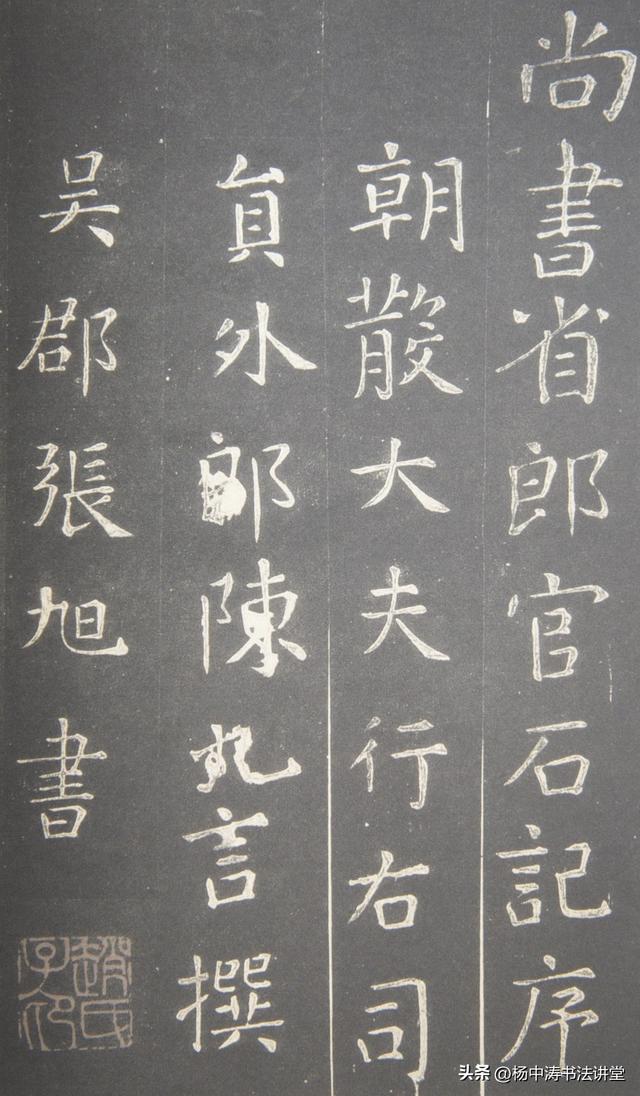 尚書省郎官石記序
朝散大夫行右司
員外郎陳九言撰
吳郡張旭書
趙氏子卬
头条 @杨中涛书法讲堂